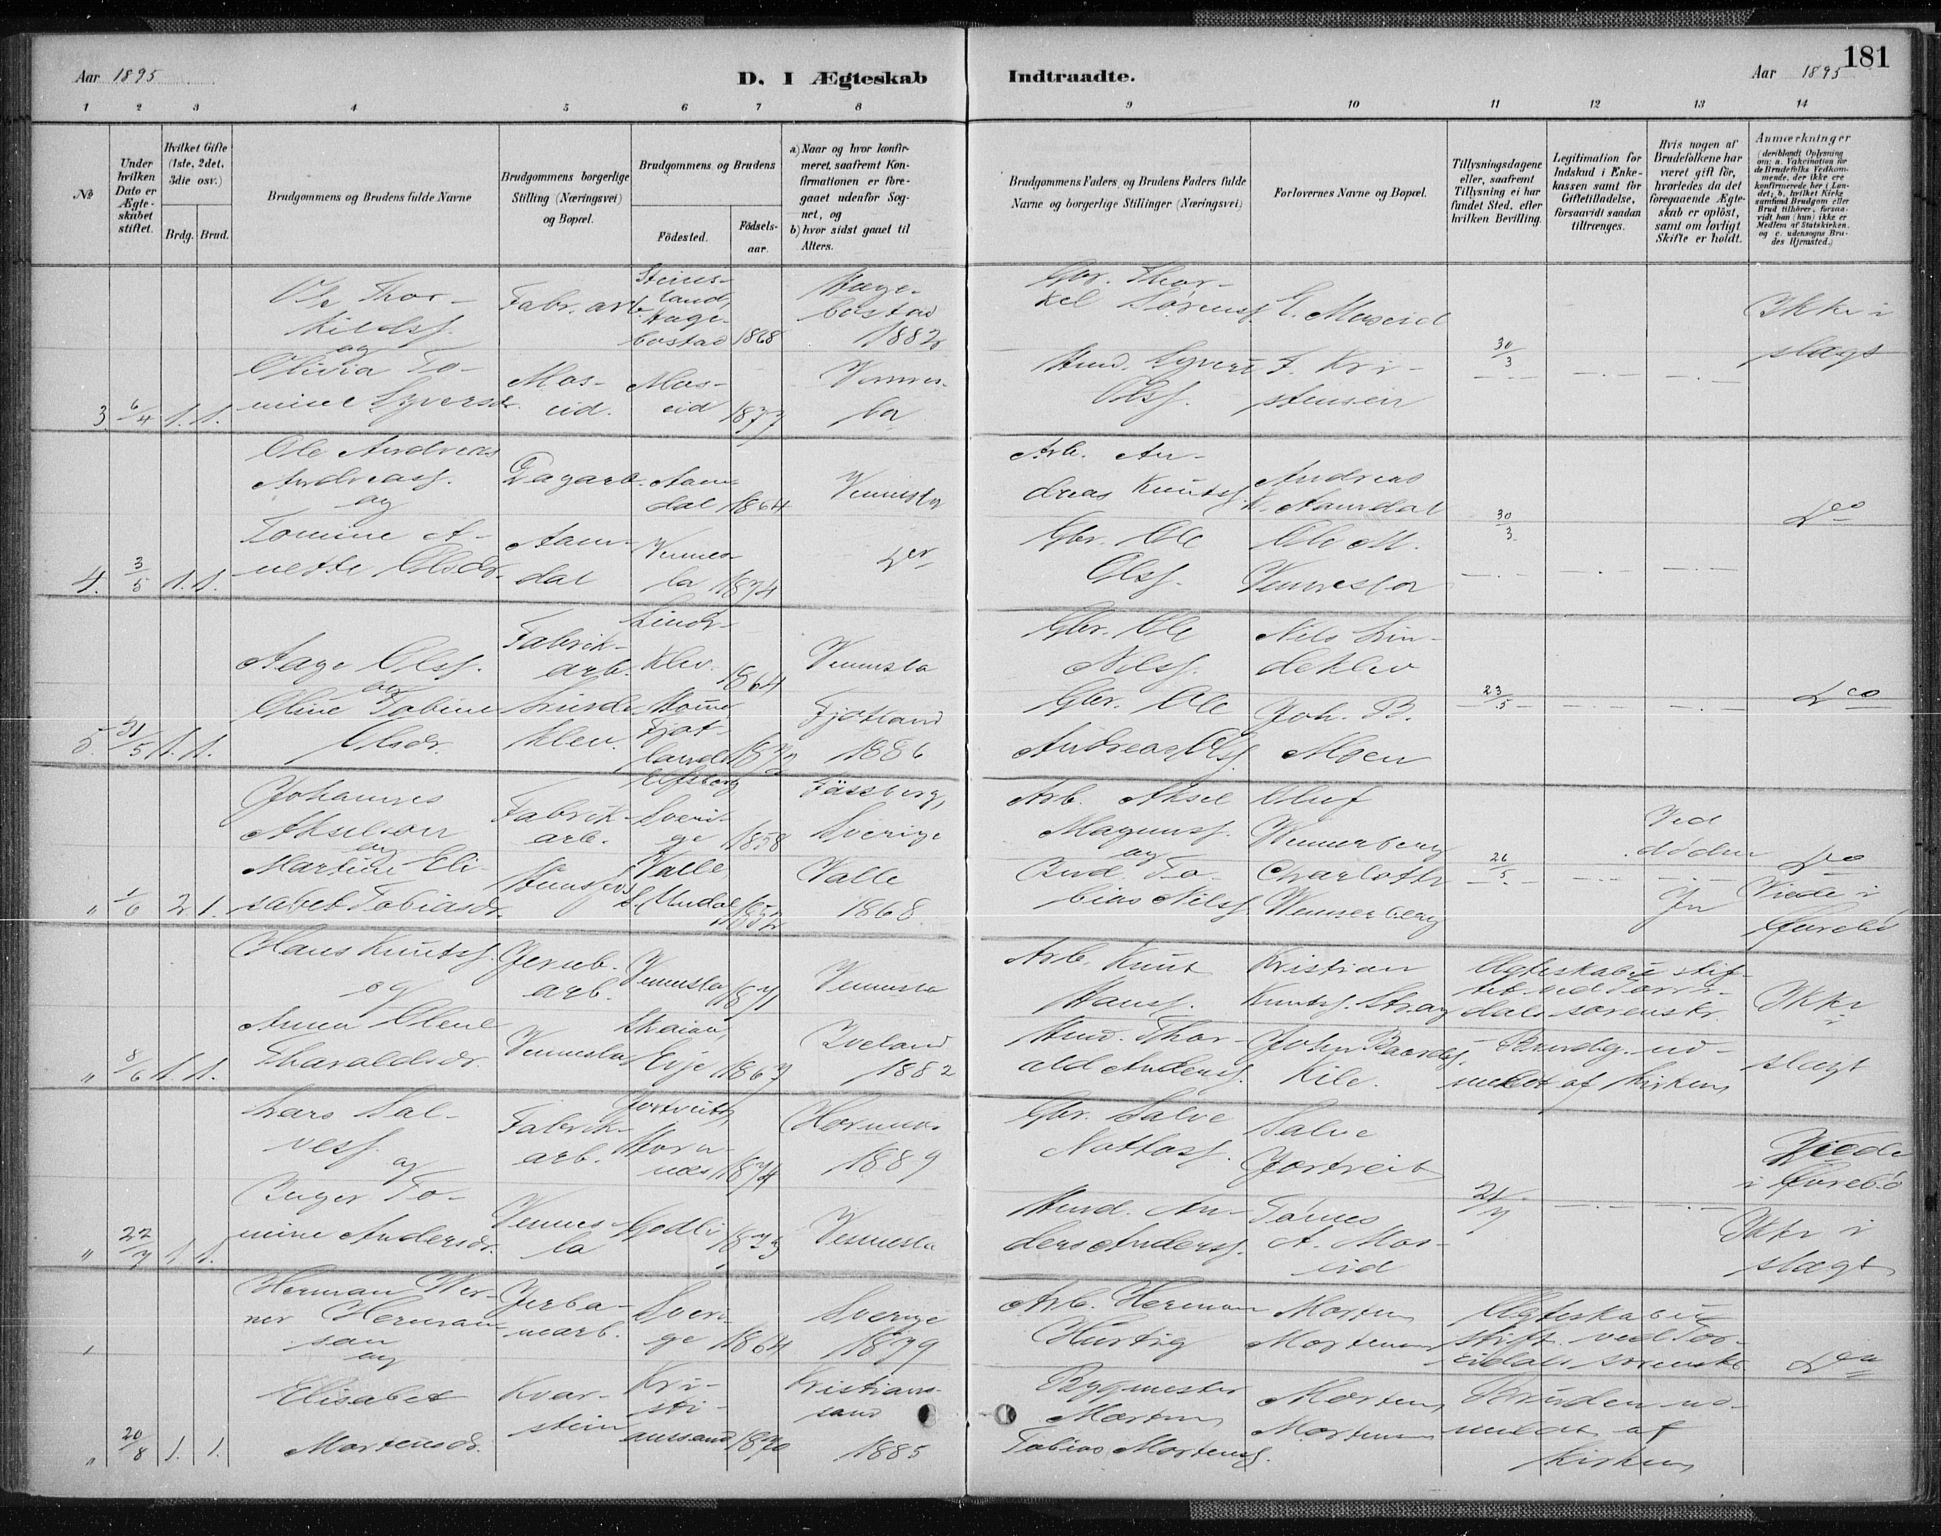 181
Aar 1895
D. I Ægteskab Indtraadte.
Aar 1895
1 2 3 4 5 6 7 8 9 10 11 12 13 14
No
Under hvilken Dato er Ægteskabet stiftet.
Hvilket Gifte (1ste, 2det, 3die osv.)
Brdg. Brud.
Brudgommens og Brudens fulde Navne
Brudgommens borgerlige Stilling (Næringsvei) og Bopæl.
Brudgommens og Brudens
Fødested.
Fødselsaar.
a) Naar og hvor konfirmeret, saafremt Konfirmationen er foregaaet udenfor Sognet, og
b) hvor sidst gaaet til Alters.
Brudgommens Faders og Brudens Faders fulde Navne og borgerlige Stillinger (Næringsvei)
Forlovernes Navne og Bopæl.
Tillysningsdagene eller, saafremt Tillysning ei har fundet Sted, efter hvilken Bevilling.
Legitimation for Indskud i Enkekassen samt for Giftetilladelse, forsaavidt saadan tiltrænges.
Hvis nogen af Brudefolkene har været gift før, hvorledes da det foregaaende Ægteskab er opløst, samt om lovligt Skifte er holdt.
Anmærkninger (deriblandt Oplysning om: a. Vakcination for de Brudefolks Vedkommende, der ikke ere konfirmerede her i Landet; b. hvilket Kirkesamfund Brudgom eller Brud tilhører, forsaavidt han (hun) ikke er Medlem af Statskirken, og c. udensogns Brudes Hjemsted.)
3 6/4 1. 1.
Ole Thorkildsf.
og
Olivia Tomine Syversdr.
Fabr. arb.
Moseid.
Steinsland, Hægebostad 1868
Moseid 1877
Hægebostad 1882
Vennesla
Gbr. Thorkel Sørensf.
Hmd. Syvert Olsf.
L. Moseid
F. Kristensen
30/3
Ikke i slægt
4. 3/5 1. 1.
Ole Andreas Andreasf.
og
Tomine Anette Olsdr.
Dagarb.
Aamdal
Aamdal 1864
Vennesla 1874
Vennesla
Do
Arb. Andreas Knutsf.
Gbr. Ole Olsf.
Andreas K. Aamdal
Ole M. Vennesla
30/3
Do
5. 31/5 1. 1.
Aage Olsf.
og
Oline Tobine Olsdr.
Fabrikarb.
Lindeklev.
Lindeklev. 1864
Fjotland 1872
Vennesla
Fjotland 1886
Gbr. Ole Nilsf.
Gbr. Ole Andreas Olsf.
Nils Lindeklev
Joh. B. Moen
23/5
Do
" 1/6 2 1.
Johannes Akselson
og
Martine Elisabet Tobiasdr.
Fabrikarb.
Hunsfos
Elfsborg Sverige 1858
Valle, S. Undal 1852
Fässberg, Sverige
Valle 1868
Arb. Aksel Magnusf.
og
Tobias Nilsf.
Oluf Wennerberg
Charlotte Wennerberg
26/5
Ved døden
Ja
Do
Viede i Øvrebø
" 8/6 1. 1.
Hans Knutsf.
og
Anna Olene Tharaldsdr.
Jernb. arb.
Vennesla
Vennesla 1871
Eije 1867
Vennesla
Iveland 1882
Arb. Knut Hansf.
Hmd. Tharald Andersf.
Kristian Knutsf. Strag
John Baardsf. Kile.
Ægteskabet stiftet ved Torridals sorenskr.
Brudg. udmeldt af kirken
Ikke i slægt
" 22/7 1. 1.
Lars Salvesf.
og
Inger Tomine Andersdr.
Fabrikarb.
Vennesla
Jortveit, Hornnes 1874
Godli
Hornnes 1889
Vennesla
Gbr. Salve
Hmd. Anders Andersf.
Salve Jortveit
A. Moseid
21/7
Viede i Øvrebø
Ikke i slægt
" 20/8 1. 1.
Herman Werner Hermansan
og
Elisabet Mortensdr.
Jerbanearb.
Kvarstein
Sverige 1864
Kristianssand 1870
Sverige 1879
Kristianssand 1885
Arb. Herman Hurtig
Bygmester Morten Tobias Mortensf.
Morten Mortensen
Morten Mortensen
Ægteskabet stift. ved Torridals sorenskr.
Bruden udmeldt af kirken
Do